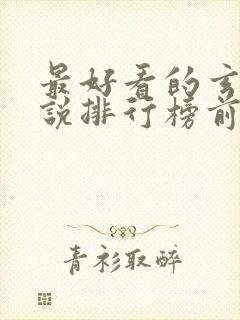 最好看的玄
說排行榜前
青衫取醉